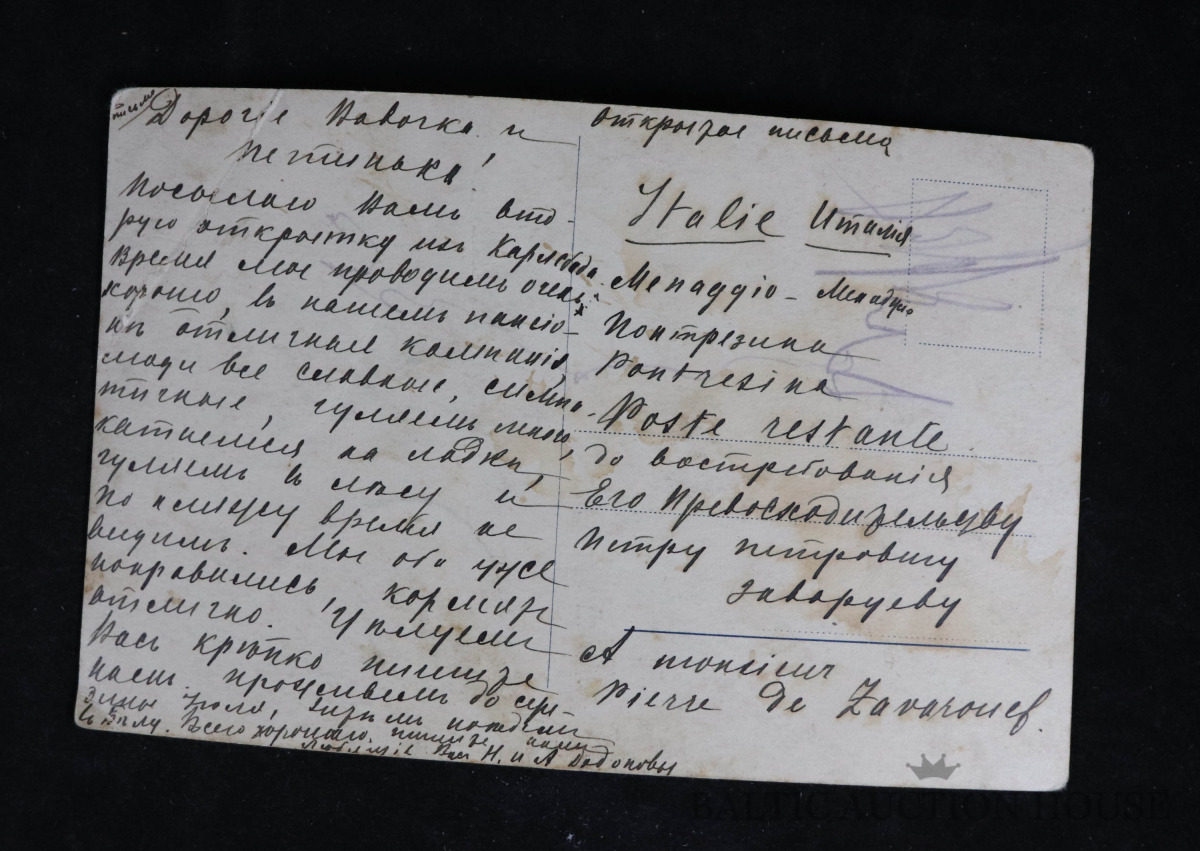 письмо
Дорогіе Навочка и
Петинька!
Посылаю Вамъ вто-
рую открытку изъ Карлсбада.
Время мы проводимъ очень
хорошо, въ нашемъ пансіо-
нѣ отличная компанія,
люди все славные, симпа-
тичные, гуляемъ много,
катаемся на лодкѣ,
гуляемъ въ лѣсу и
по пляжу время не
видимъ. Мы оба уже
поправились, кормятъ
отлично. Цѣлуемъ
Васъ крѣпко пишите
намъ. проживемъ до сере-
дины Іюля, затѣмъ поѣдемъ
Всего хорошаго. пишите намъ
Любящіе Васъ Н. и А Додоновы
Открытое письмо
Italie Италія
Menaggio - Менаджіо
Понтрезина
Pontresina
Poste restante
до востребованія
Его Превосходительству
Петру Петровичу
Заваруеву
A monsieur
Pierre de Zavarouef.
BALTIC AUCTION HOUSE